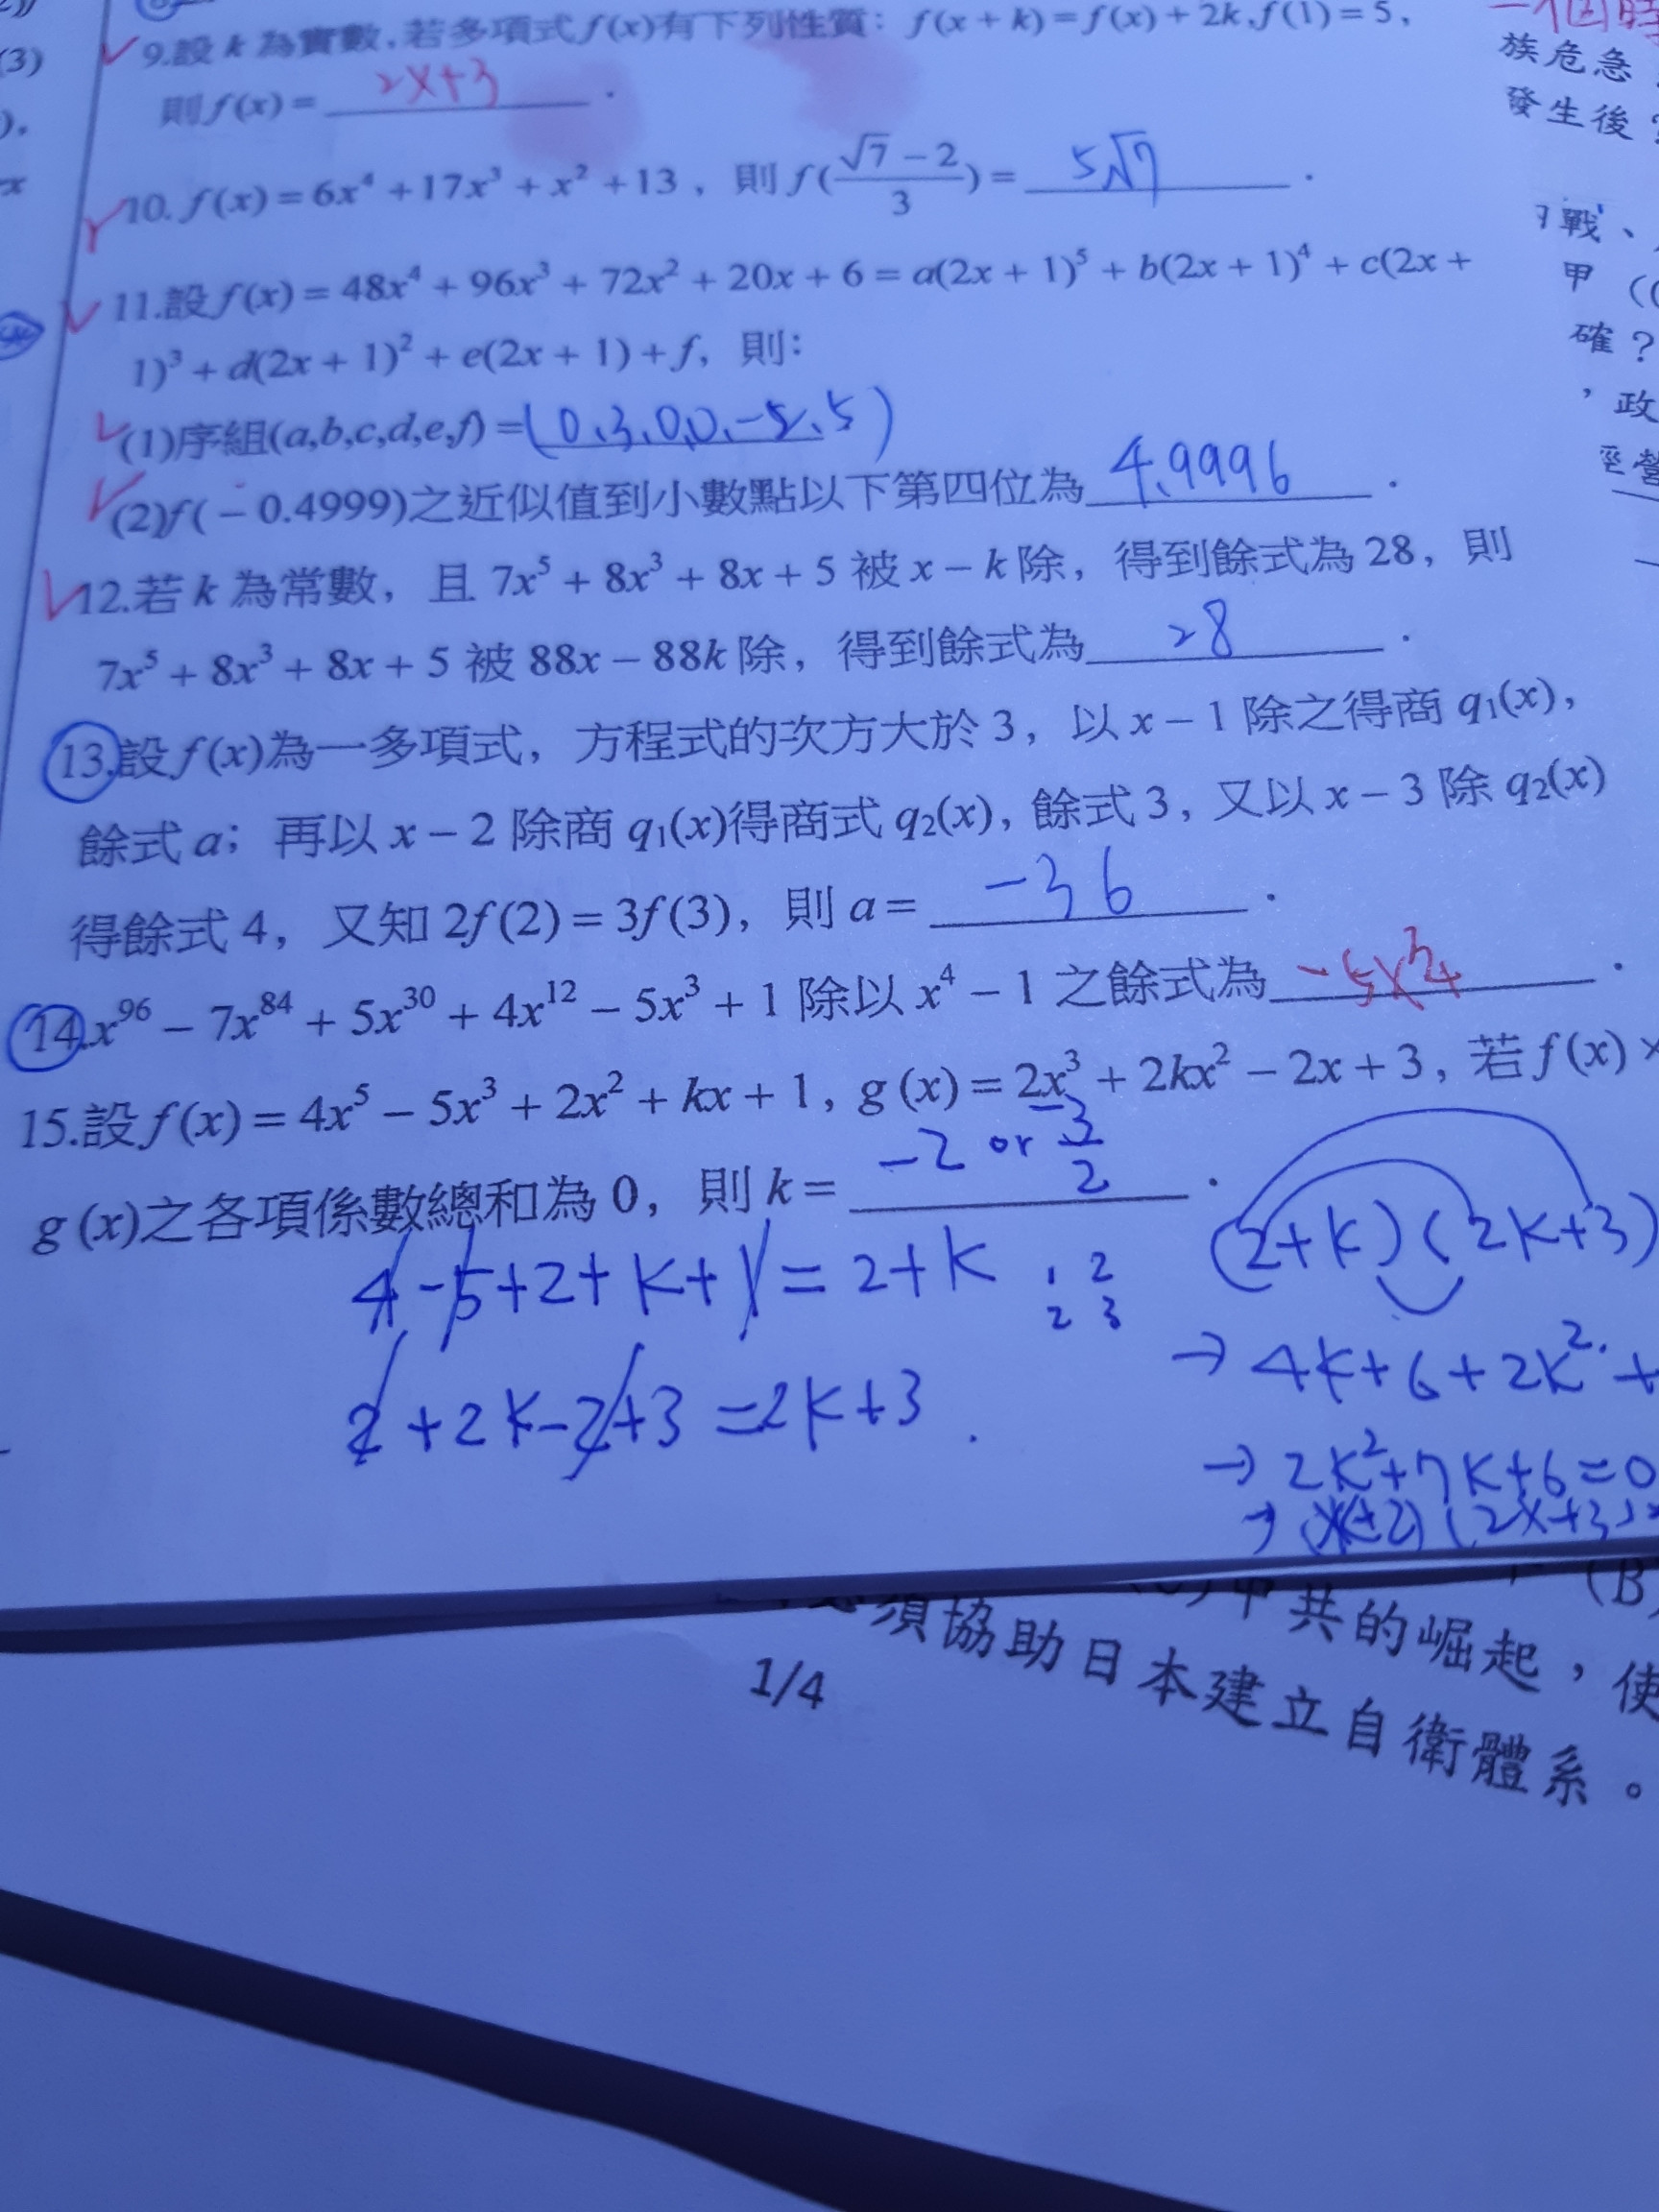 (3)
9.設 k 為實數,若多項式 f(x)有下列性質: f(x + k) = f(x) + 2k, f(1) = 5,
則 f(x) = 2x+3 .
10. f(x) = 6x⁴ + 17x³ + x² + 13 , 則 f((√7 − 2)/3) = 5√7 .
11.設 f(x) = 48x⁴ + 96x³ + 72x² + 20x + 6 = a(2x + 1)⁵ + b(2x + 1)⁴ + c(2x +
1)³ + d(2x + 1)² + e(2x + 1) + f, 則:
(1)序組(a,b,c,d,e,f) = (0、3、0、0、-5、5)
(2)f(− 0.4999)之近似值到小數點以下第四位為 4.9996 .
12.若 k 為常數, 且 7x⁵ + 8x³ + 8x + 5 被 x − k 除, 得到餘式為 28, 則
7x⁵ + 8x³ + 8x + 5 被 88x − 88k 除, 得到餘式為 28 .
13.設 f(x)為一多項式, 方程式的次方大於 3, 以 x − 1 除之得商 q₁(x),
餘式 a; 再以 x − 2 除商 q₁(x)得商式 q₂(x), 餘式 3, 又以 x − 3 除 q₂(x)
得餘式 4, 又知 2f(2) = 3f(3), 則 a = -36 .
14.x⁹⁶ − 7x⁸⁴ + 5x³⁰ + 4x¹² − 5x³ + 1 除以 x⁴ − 1 之餘式為 .
15.設 f(x) = 4x⁵ − 5x³ + 2x² + kx + 1, g (x) = 2x³ + 2kx² − 2x + 3, 若 f(x) ×
g (x)之各項係數總和為 0, 則 k = -2 or -3/2 .
4-5+2+k+1=2+k
1 2
2 3
2+2k-2+3=2k+3
(2+k)(2k+3)
→ 4k+6+2k²+
→ 2k²+7k+6=0
族危急
發生後
戰、
甲
確?
,政
(B)
中共的崛起,使
須協助日本建立自衛體系。
1/4